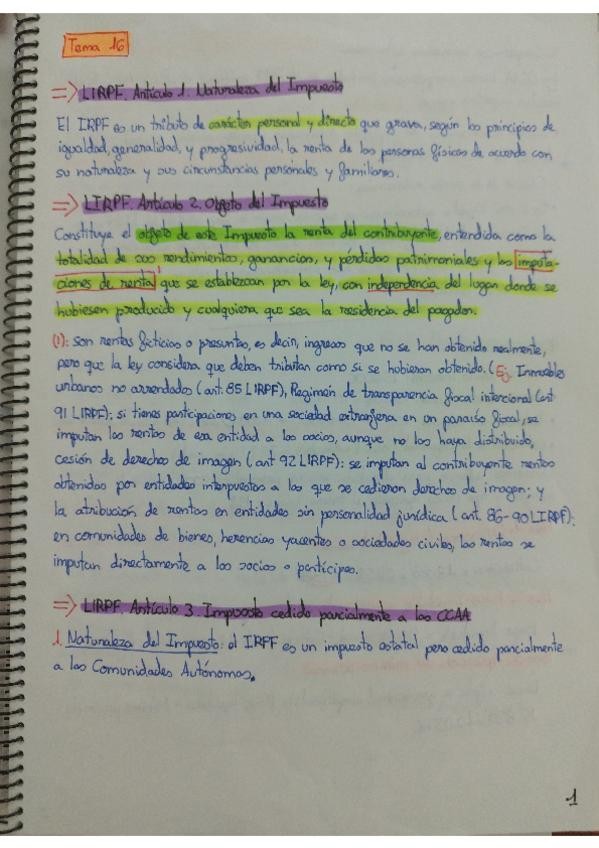 Tema 16
=> LIRPF. Artículo 1. Naturaleza del Impuesto
El IRPF es un tributo de carácter personal y directo que grava, según los principios de
igualdad, generalidad, y progresividad, la renta de las personas físicas de acuerdo con
su naturaleza y sus circunstancias personales y familiares.
=> LIRPF. Artículo 2. Objeto del Impuesto
Constituye el objeto de este Impuesto la renta del contribuyente, entendida como la
totalidad de sus rendimientos, ganancias, y pérdidas patrimoniales y las imputa-
ciones de renta(1) que se establezcan por la ley, con independencia del lugar donde se
hubiesen producido y cualquiera que sea la residencia del pagador.
(1): son rentas ficticias o presuntas, es decir, ingresos que no se han obtenido realmente,
pero que la ley considera que deben tributar como si se hubieran obtenido. (Ej: Inmuebles
urbanos no arrendados (art. 85 LIRPF), Regimen de transparencia fiscal internacional (art
91 LIRPF): si tienes participaciones en una sociedad extranjera en un paraíso fiscal, se
imputan las rentas de esa entidad a los socios, aunque no las haya distribuido,
cesión de derechos de imagen (art 92 LIRPF): se imputan al contribuyente rentas
obtenidas por entidades interpuestas a las que se cedieron derechos de imagen; y
la atribución de rentas en entidades sin personalidad jurídica (art. 86-90 LIRPF):
en comunidades de bienes, herencias yacentes o sociedades civiles, las rentas se
imputan directamente a los socios o partícipes.
=> LIRPF. Artículo 3. Impuesto cedido parcialmente a las CCAA
1. Naturaleza del Impuesto: el IRPF es un impuesto estatal pero cedido parcialmente
a las Comunidades Autónomas.
1